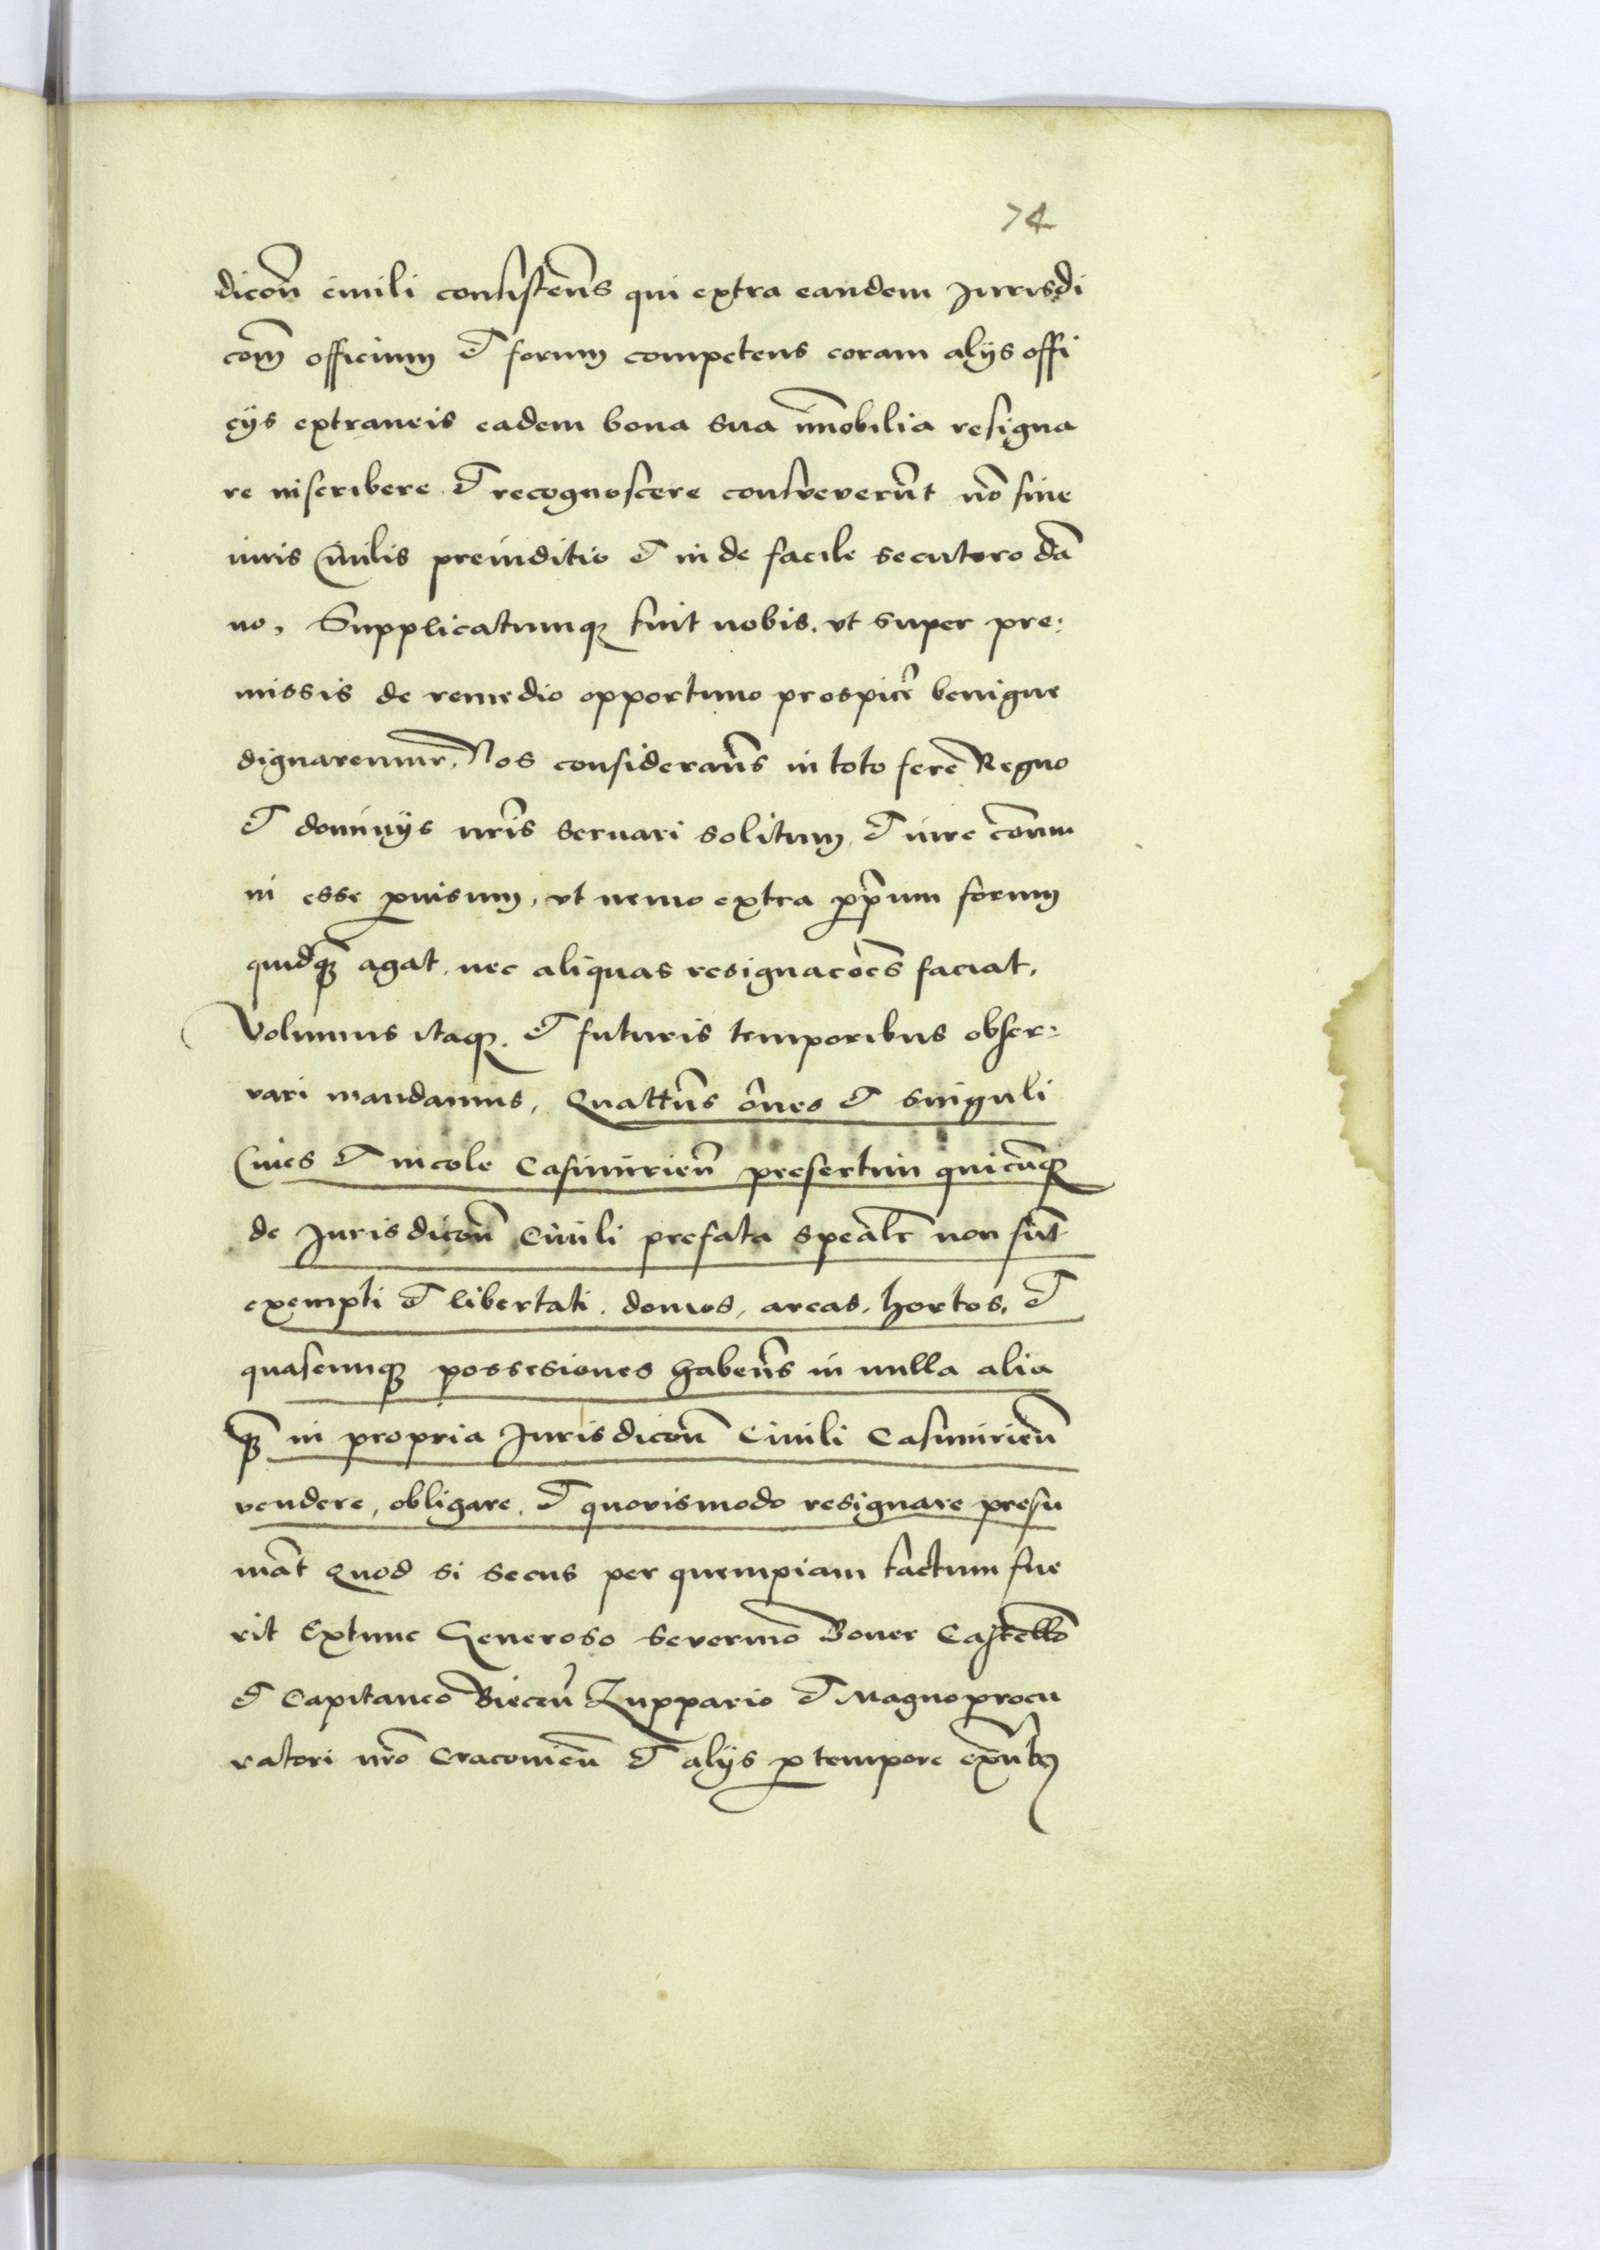 74
dicōn ciuili consisteñs qui extra eandem Jurisdi
cōm officium et forum competens coram alijs offi
cijs extraneis eadem bona sua im̄obilia resigna
re inscribere et recognoscere consveverūt nō sine
iuris Ciuilis preiuditio et inde facile secuturo dā
no, Supplicatumq fuit nobis. vt super pre:
missis de remedio opportuno prospicē benigne
dignaremur, Nos considerañs in toto ferē Regno
et dominijs nr̄is seruari solitum et iure cōmu
ni esse ꝓuisum, vt nemo extra ꝓp̄rium forum
quidq̄ agat. nec aliquas resignacōes faciat,
Volumus itaq. et futuris temporibus obser:
vari mandamus, Quatt̄us om̄es et singuli
Ciues et incole Casimirieñ presertim quicūq
de Jurisdicōn Ciuili prefata spēalr̄ non sūt
exempti et libertati. domos, areas, hortos, et
quascunq possesiones habeñs in nulla alia
q̄ in propria Jurisdicōn Ciuili Casimirieñ
vendere, obligare, et quovismodo resignare presu
māt Quod si secus per quempiam factum fue
rit Extunc Generoso Severino Boner Castellō
et Capitaneo Bieceñ Zuppario et Magnoprocu
ratori nr̄o Cracouieñ et alijs ꝓ tempore exn̄tibꝰ